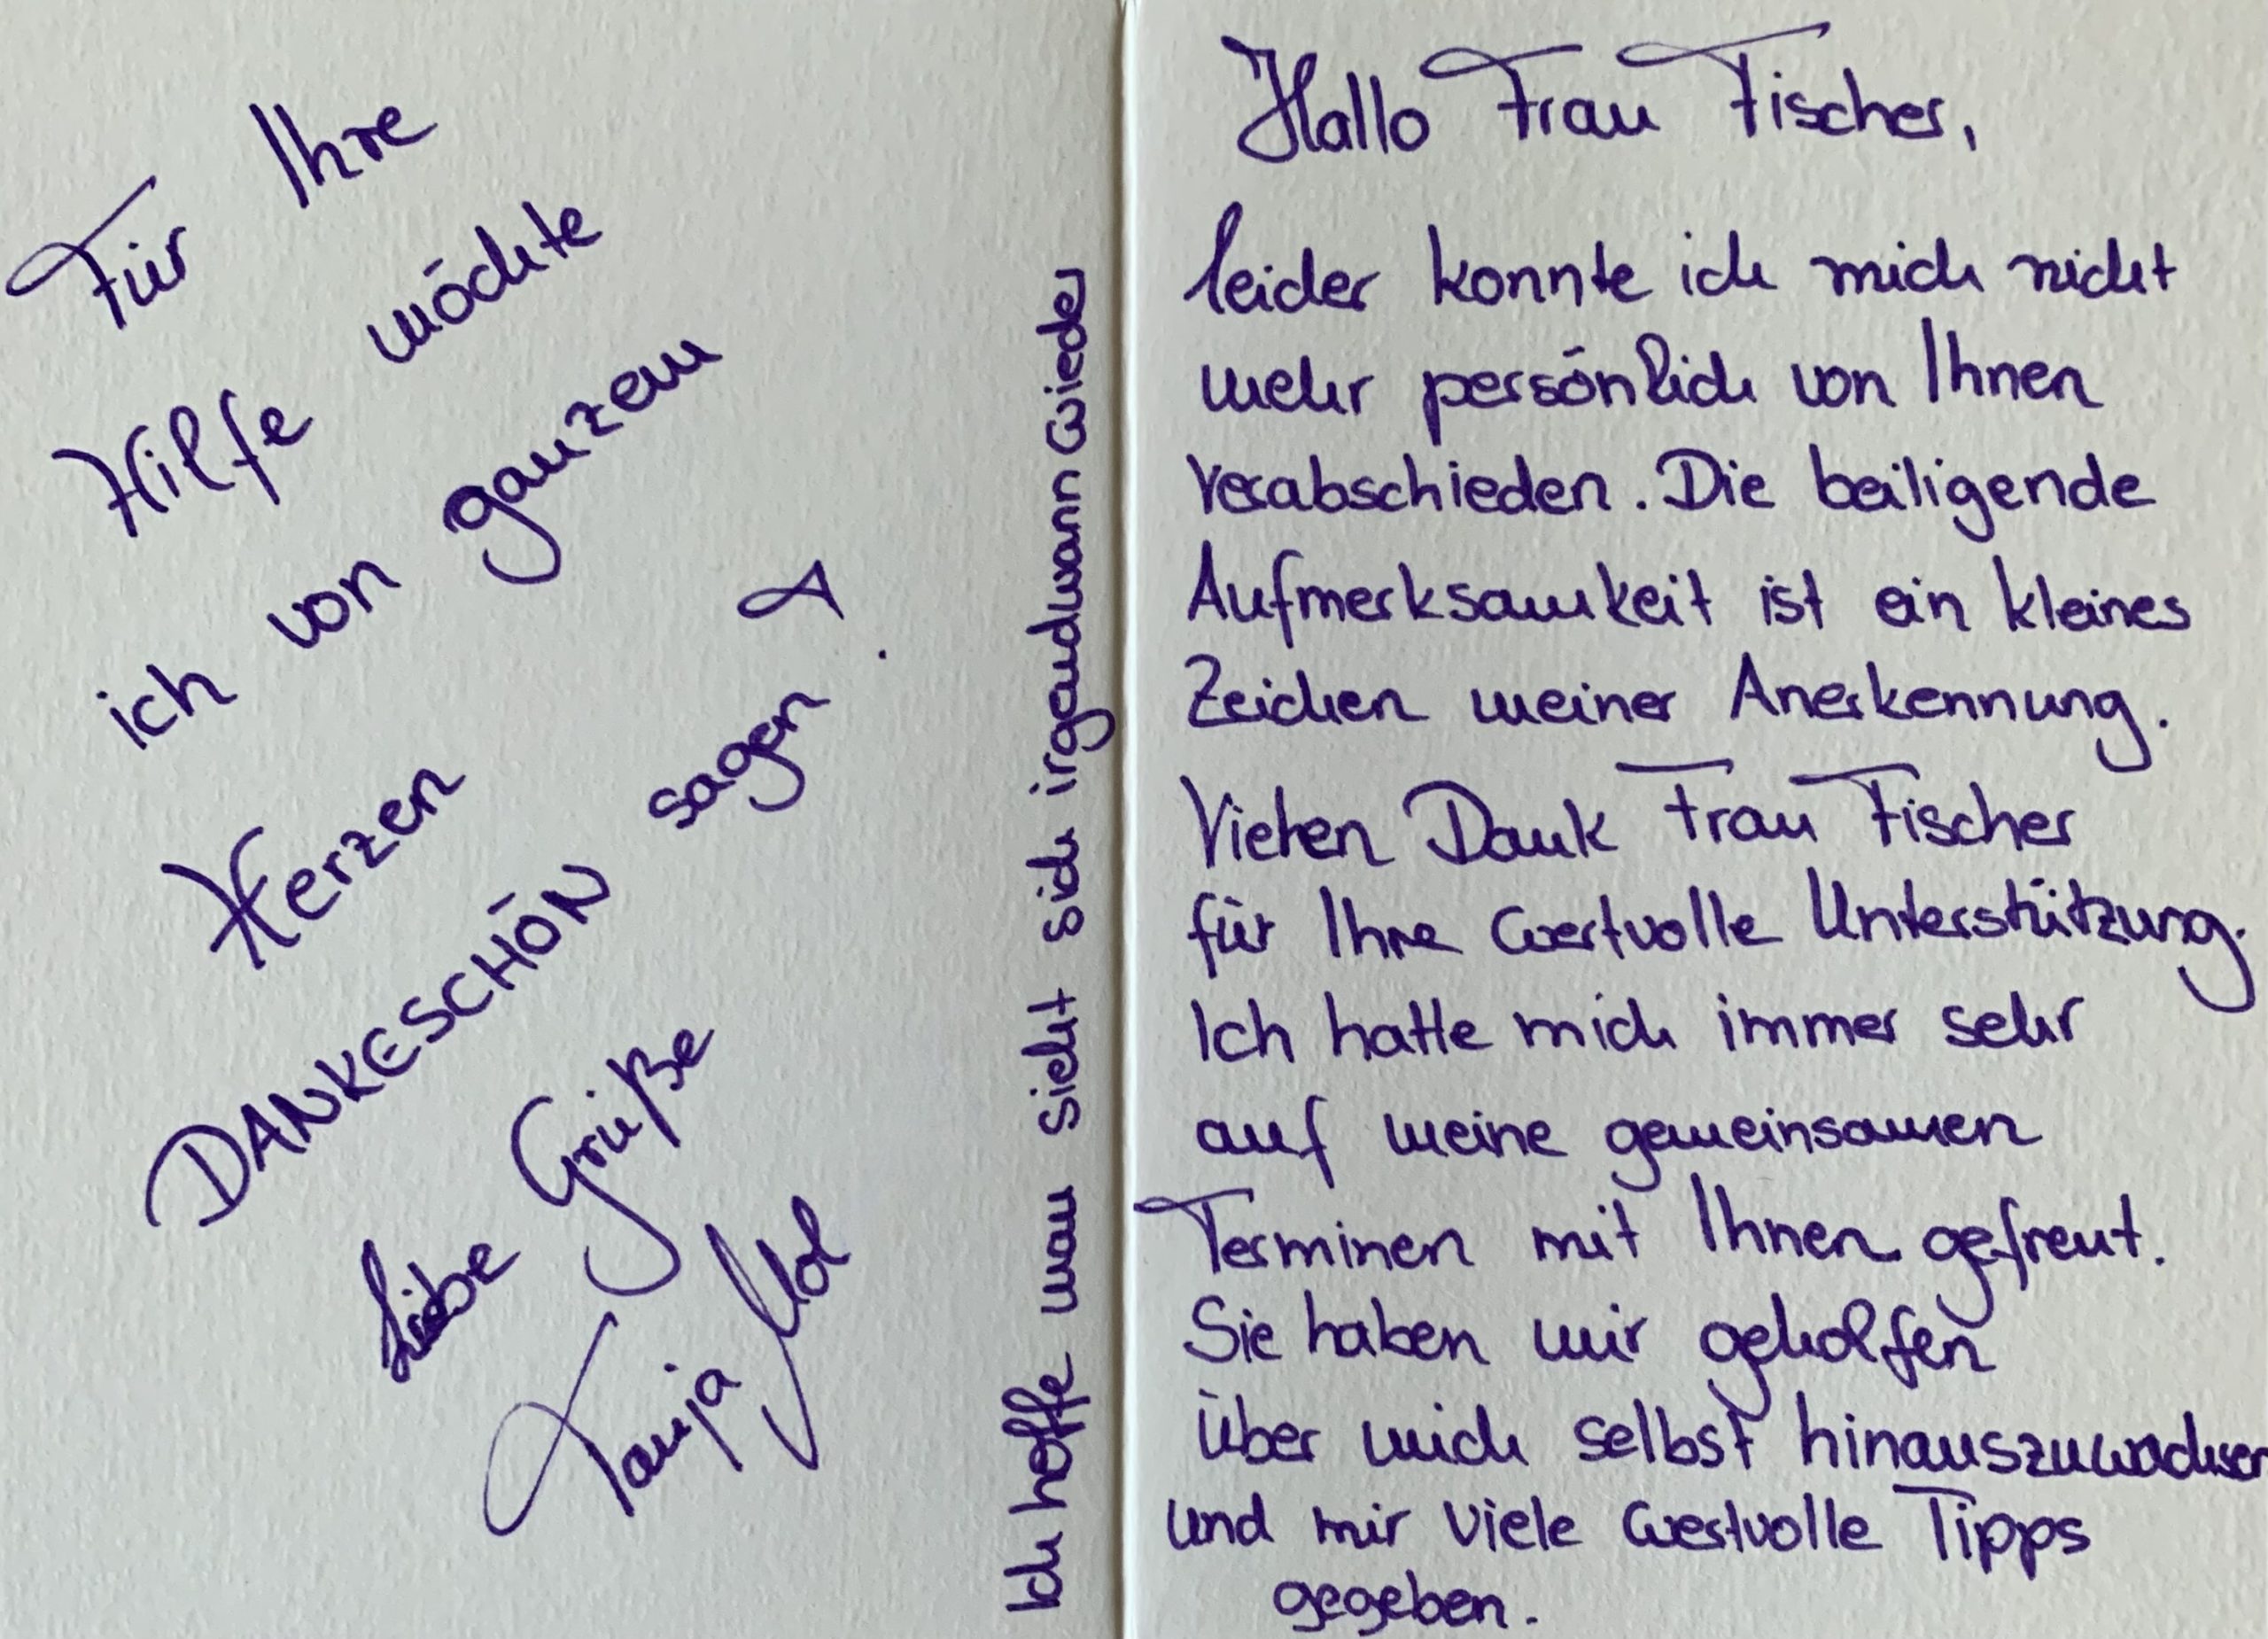 Hallo Frau Fischer,
leider konnte ich mich nicht
mehr persönlich von Ihnen
verabschieden. Die beiligende
Aufmerksamkeit ist ein kleines
Zeichen meiner Anerkennung.
Vielen Dank Frau Fischer
für Ihre wertvolle Unterstützung.
Ich hatte mich immer sehr
auf meine gemeinsamen
Terminen mit Ihnen gefreut.
Sie haben mir geholfen
über mich selbst hinauszuwachsen
und mir viele wertvolle Tipps
gegeben.
Für Ihre
Hilfe möchte
ich von ganzem
Herzen
DANKESCHÖN sagen!
Liebe Grüße
Tanja
Ich hoffe man sieht sich irgendwann wieder